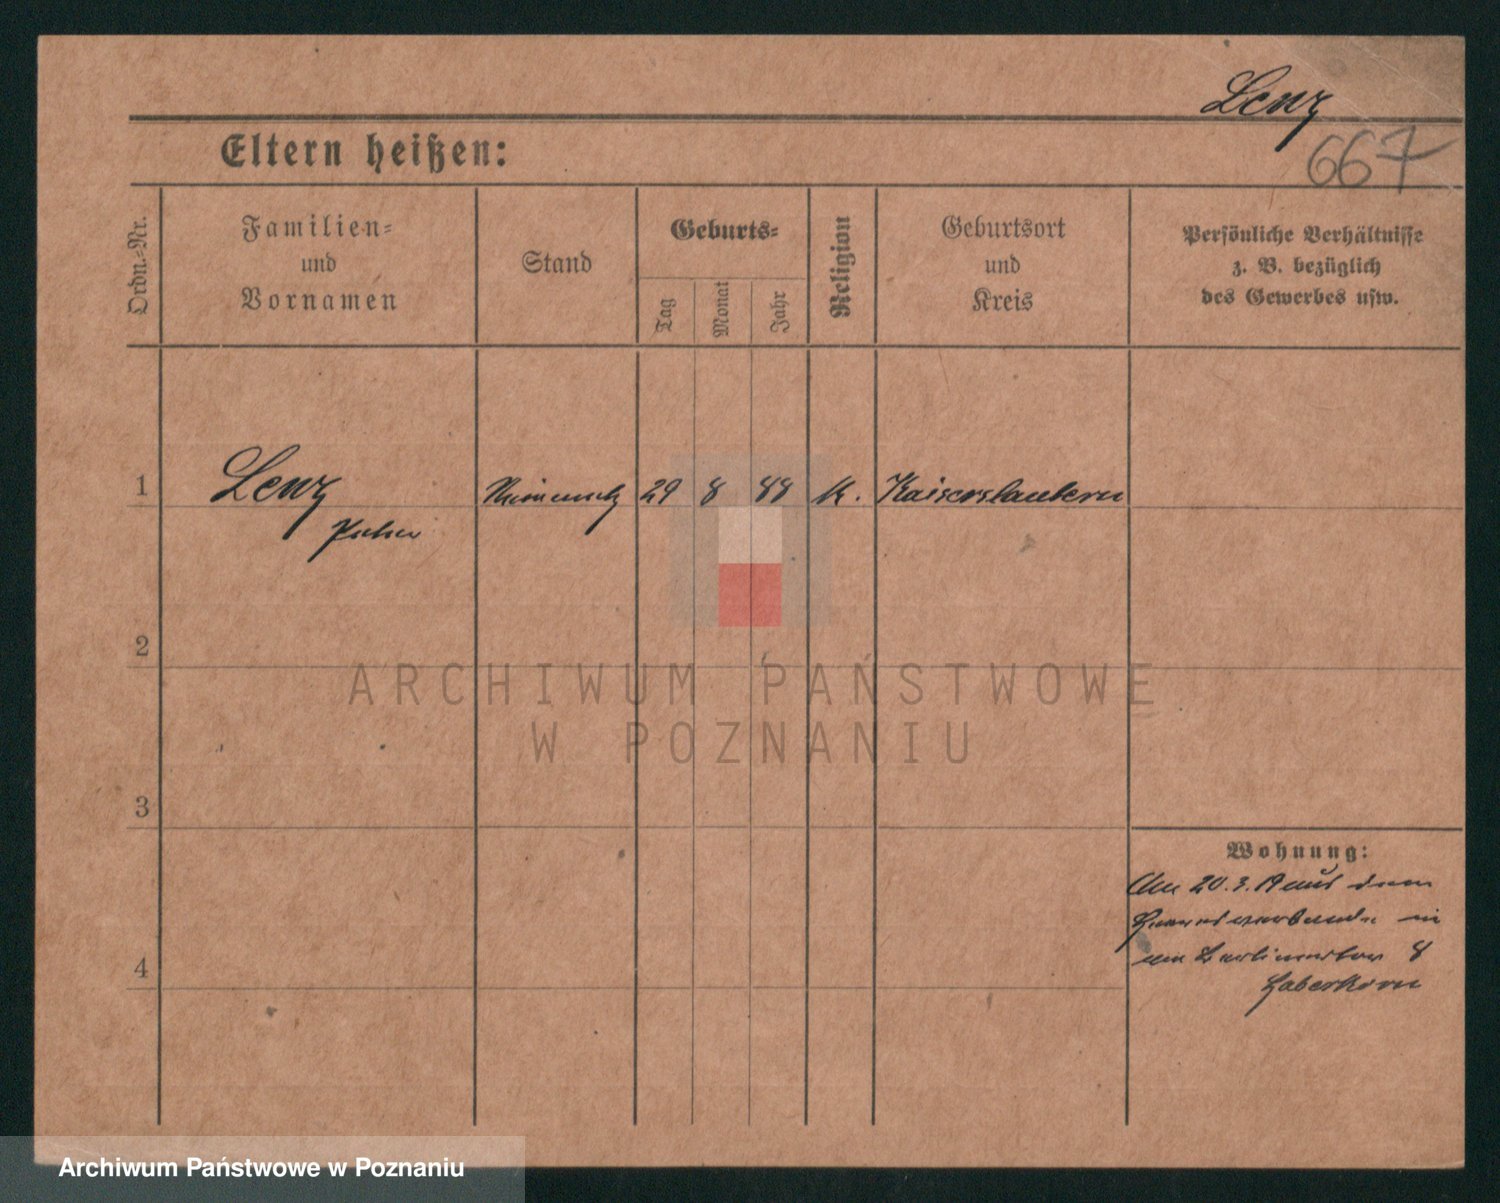 Lenz
667
Eltern heißen:
Ordn.-Nr.
Familien-
und
Vornamen
Stand
Geburts-
Tag
Monat
Jahr
Religion
Geburtsort
und
Kreis
Persönliche Verhältnisse
z. B. bezüglich
des Gewerbes usw.
1
Lenz
29 8 88 K. Kaiserslautern
2
ARCHIWUM PAŃSTWOWE
W POZNANIU
3
Wohnung:
Am 20.3.19 aus dem
in
8
Haberkorn
4
Archiwum Państwowe w Poznaniu